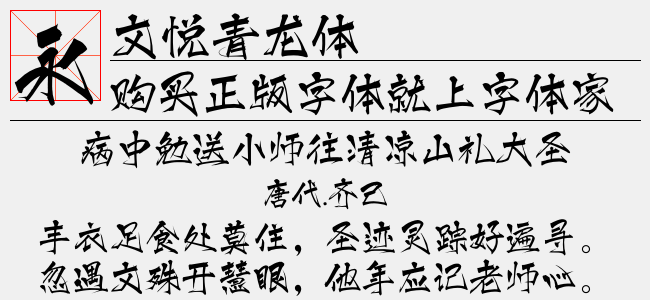 永
文悦青龙体
购买正版字体就上字体家
病中勉送小师往清凉山礼大圣
唐代.齐己
丰衣足食处莫住，圣迹灵踪好遍寻。
忽遇文殊开慧眼，他年应记老师心。